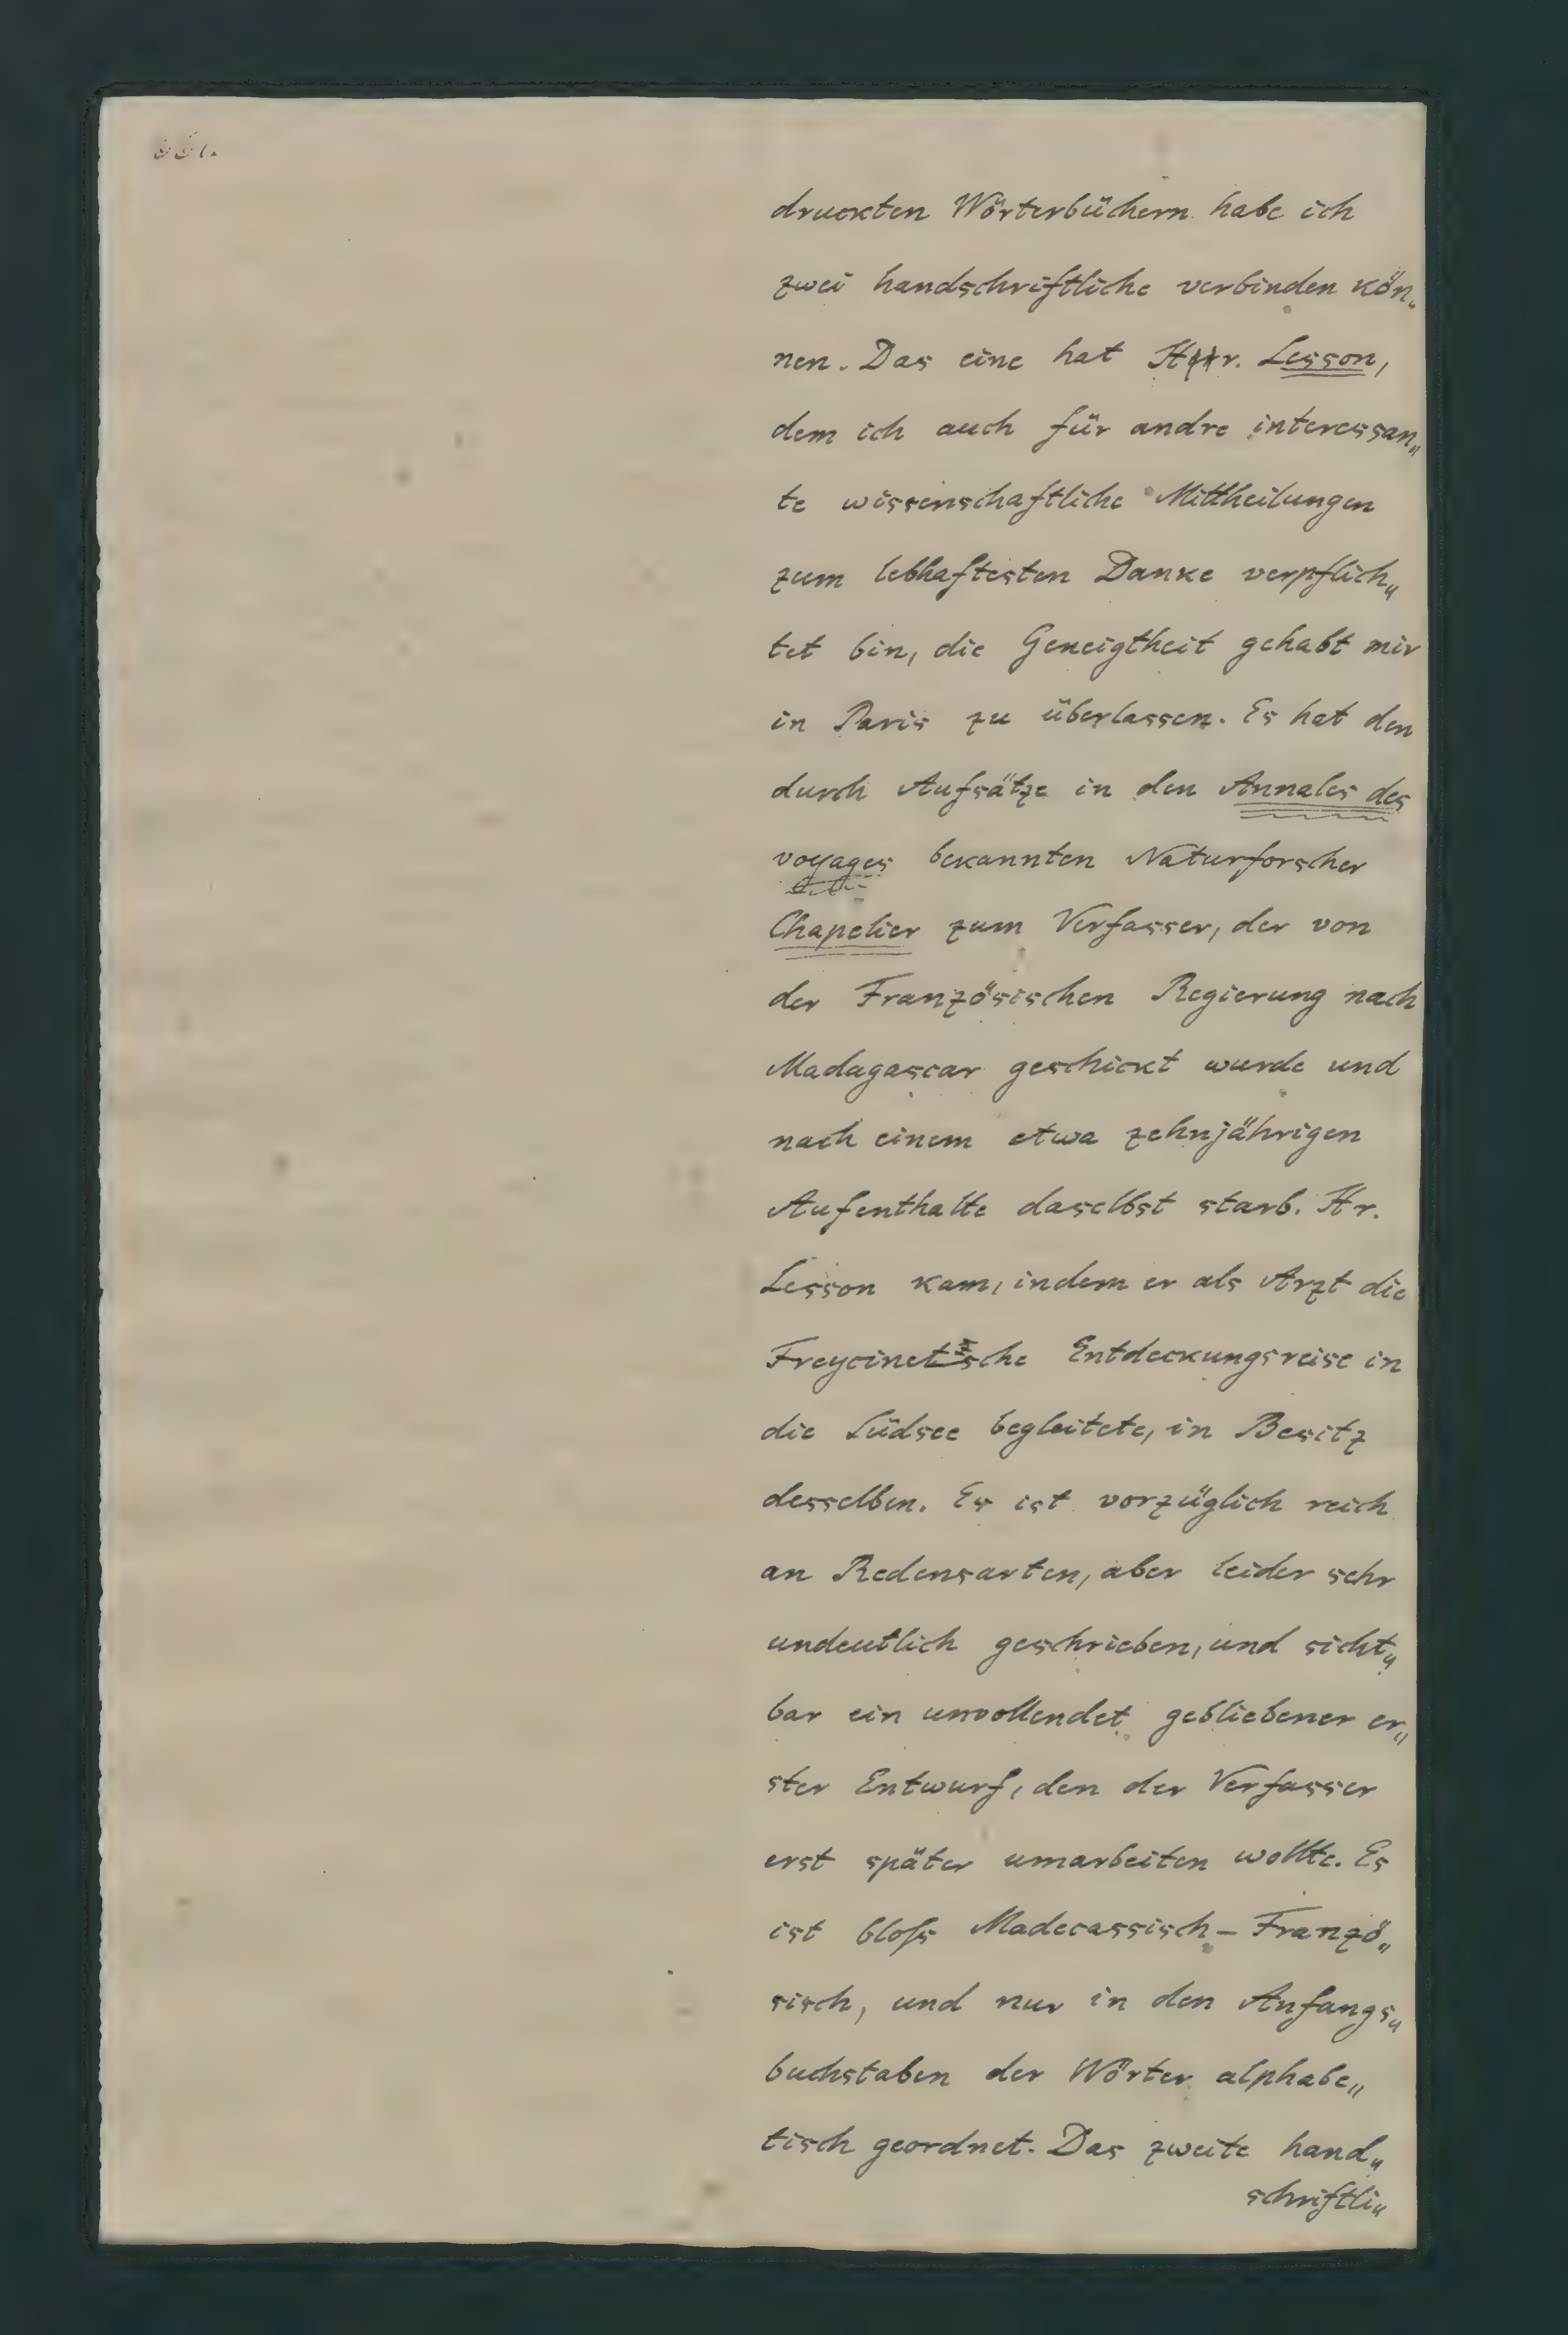 druckten Wörterbüchern habe ich
zwei handschriftliche verbinden kön„
nen. Das eine hat Hr. Lesson,
dem ich auch für andre interessan„
te wissenschaftliche Mittheilungen
zum lebhaftesten Danke verpflich„
tet bin, die Geneigtheit gehabt mir
in Paris zu überlassen. Es hat den
durch Aufsätze in den Annales des
voyages bekannten Naturforscher
Chapelier zum Verfasser, der von
der Französischen Regierung nach
Madagascar geschickt wurde und
nach einem etwa zehnjährigen
Aufenthalte daselbst starb. Hr.
Lesson kam, indem er als Arzt die
Freycinetsche Entdeckungsreise in
die Südsee begleitete, in Besitz
desselben. Es ist vorzüglich reich
an Redensarten, aber leider sehr
undeutlich geschrieben, und sicht„
bar ein unvollendet gebliebener er„
ster Entwurf, den der Verfasser
erst später umarbeiten wollte. Es
ist bloſs Madecassisch-Franzö„
sisch, und nur in den Anfangs„
buchstaben der Wörter alphabe„
tisch geordnet. Das zweite hand„
schriftli„